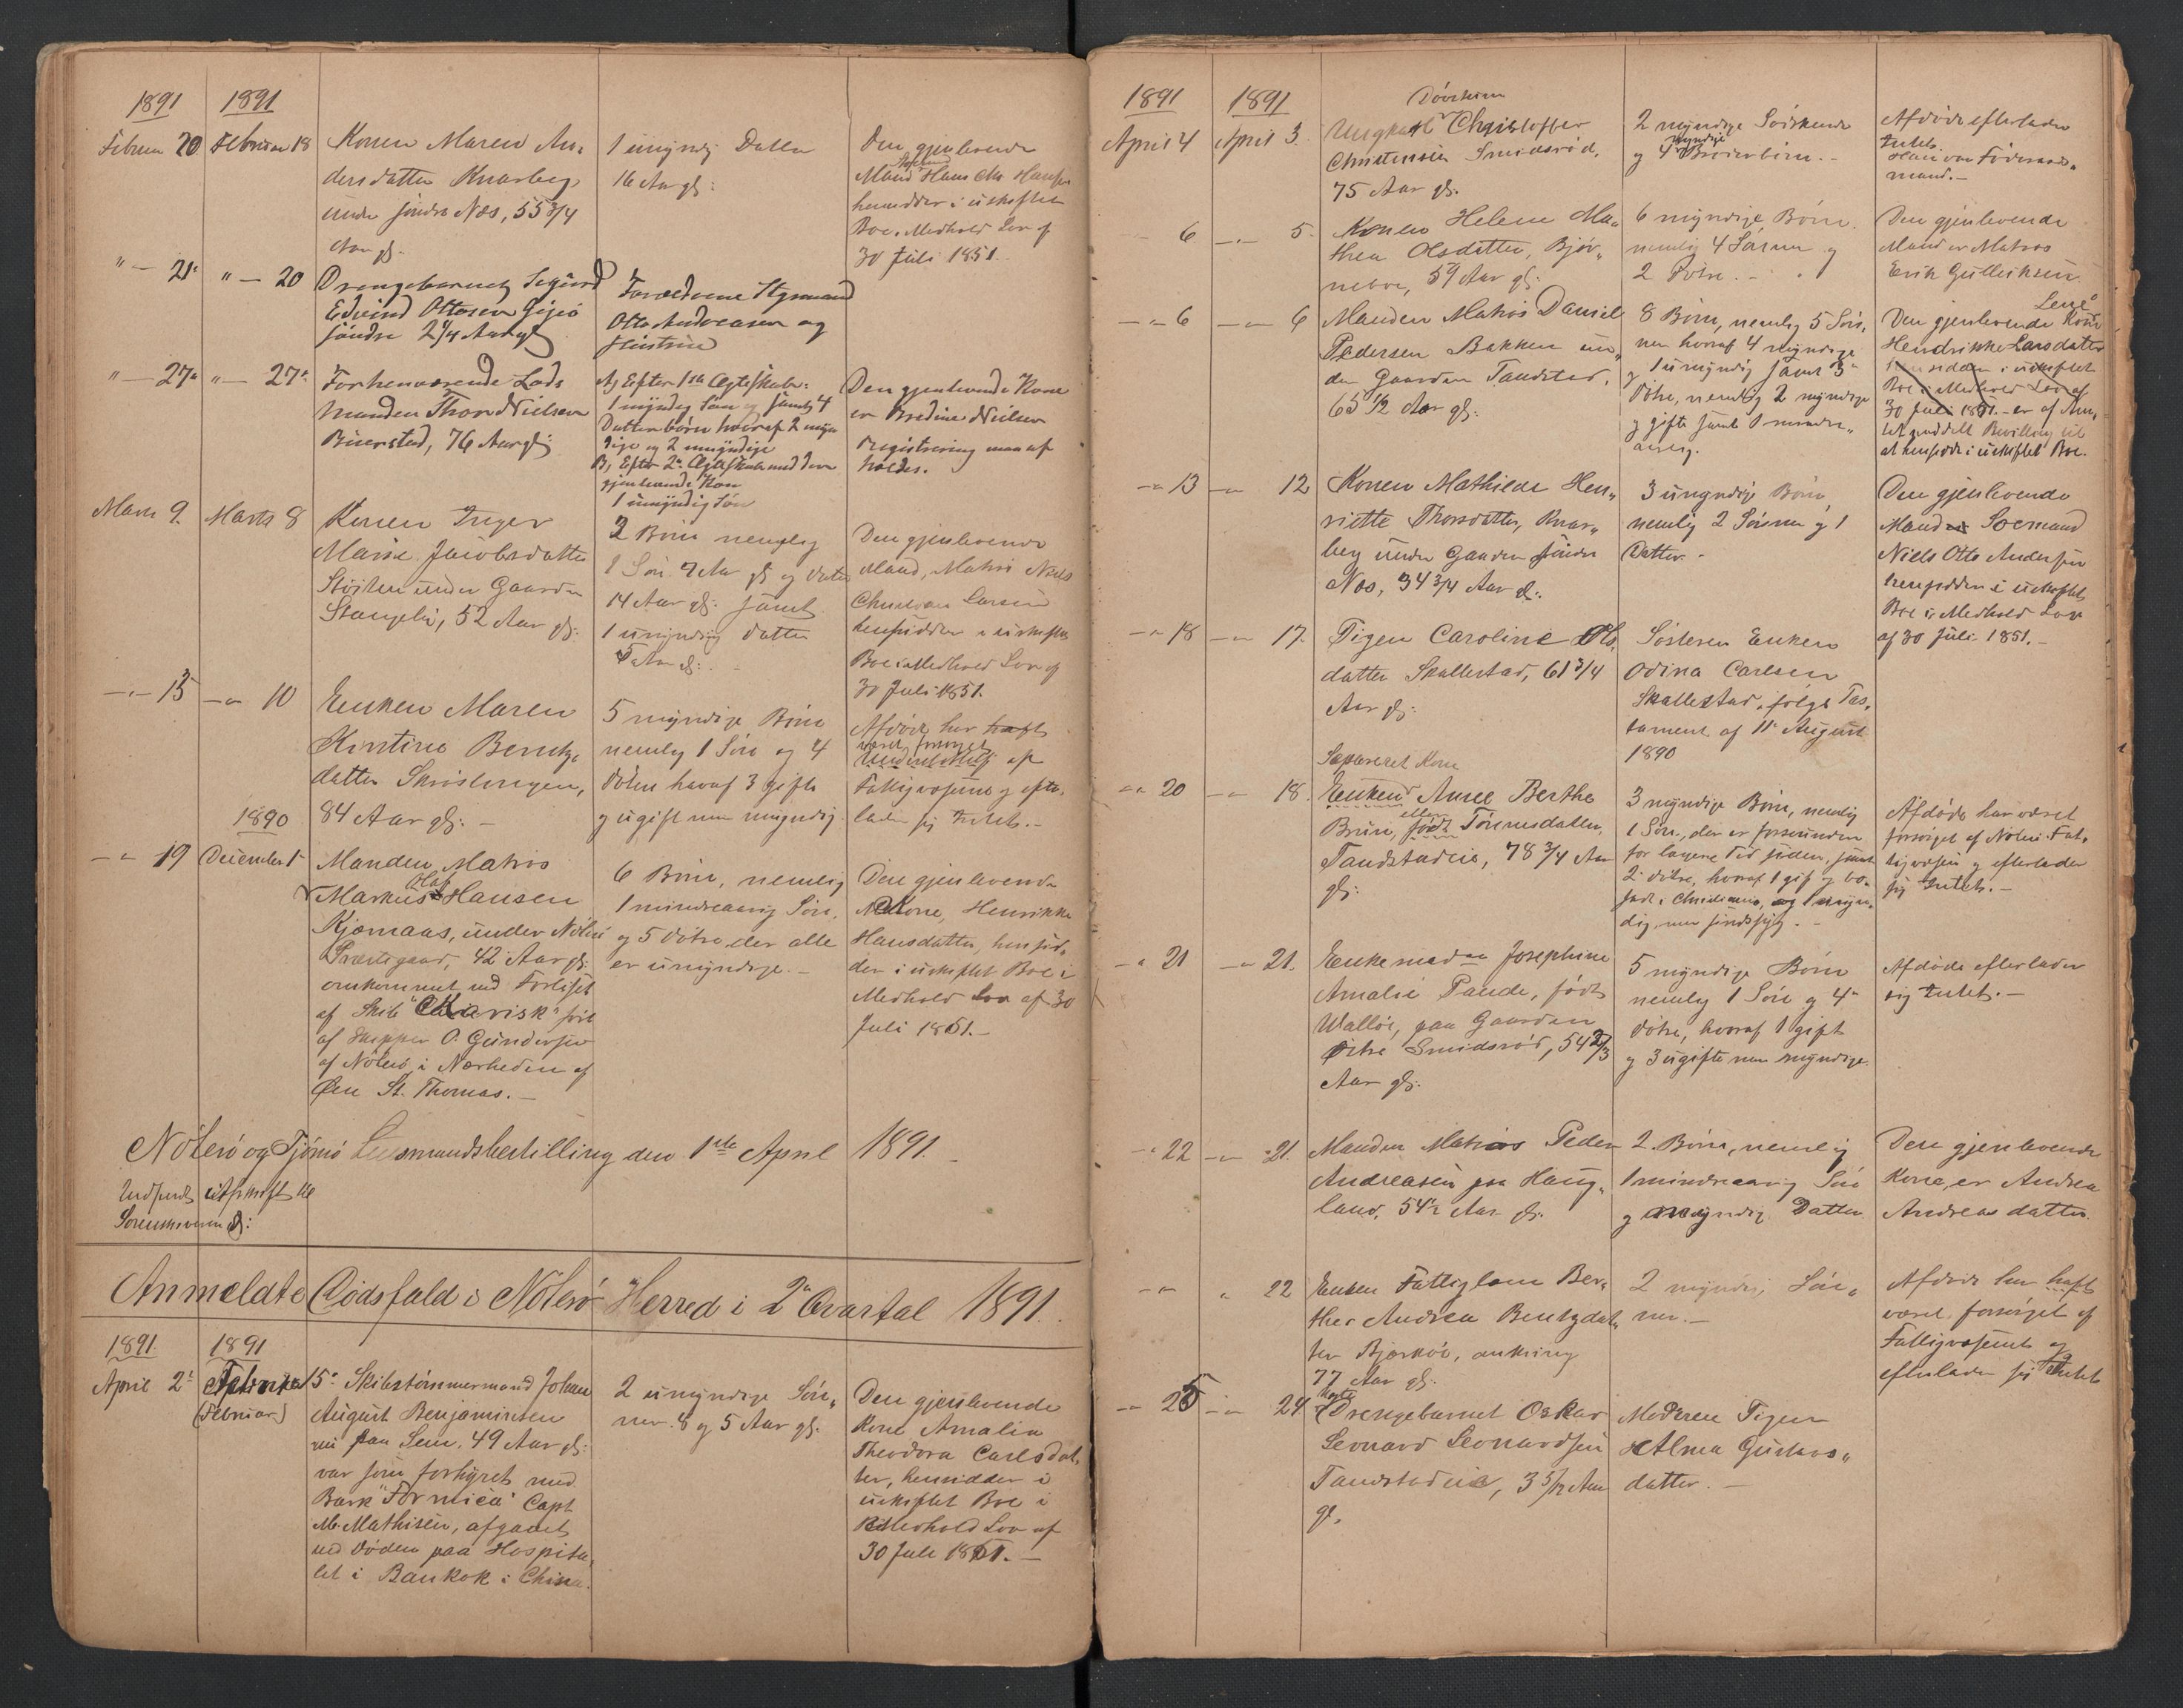 1891 1891
Februar 20 Februar 18 Konen Maren An-
dersdatter Knarberg
under søndre Næs, 55 3/4
Aar gl.
1 umyndig Datter
16 Aar gl:
Den gjenlevende
Mand Hans Chr Hansen
hensidder i uskiftet
Boe i Medhold Lov af
30 Juli 1851.
" — 21 " — 20 Drengebarnet Sigurd
Edvind Ottosen Gipø
søndre 2 1/4 Aar gl
Forældrene Styrmand
Otto Andreasen og
Hustru
" — 27 " — 27 Forhenværende Lods
Manden Thor Nielsen
Buerstad, 76 Aar gl:
A, Efter 1ste Ægteskab:
1 myndig Søn og samt 4
Datterbørn hvoraf 2 myn
dige og 2 umyndige
B, Efter 2det Ægteskab med den
gjenlevende Kone
1 umyndig Søn
Den gjenlevende Kone
er Bredine Nielsen
Registrering maa af
holdes.
Marts 9. Marts 8 Konen Inger
Marie Jacobsdatter
under Gaarden
Stangeby, 52 Aar gl:
2 Børn nemlig
1 Søn 7 Aar gl og datter
14 Aar gl: samt
1 umyndig datter
5 Aar gl: -
Den gjenlevende
Mand, Matros Niels
Christian Larsen
hensidder i uskiftet
Boe i Medhold Lov af
30 Juli 1851.
— 15 — 10 Enken Maren
Kirstine Bentz-
datter Skrøslingen,
84 Aar gl: -
5 myndige Børn
nemlig 1 Søn og 4
døtre hvoraf 3 gifte
og ugift men myndig
Afdøde har haft
været forsørget
Understøttelse af
Fattigvæsenet og efter-
lader sig Intet. -
1890
— 19 December 1 Manden Matros
Markus Olaf Hansen
Kjærnaas, under Nøterø
Præstegaard, 42 Aar gl:
omkommet ved Forliset
af Skib "Charisk" ført
af Skipper O. Gundersen
af Nøterø, i Nærheden af
Øen St. Thomas. —
6 Børn, nemlig
1 mindreaarig Søn,
og 5 døtre der alle
er umyndige. -
Den gjenlevende
Kone, Henrikke
Hansdatter, hensid-
der i uskiftet Boe i
Medhold Lov af 30
Juli 1851. -
Nøterø og Tjømø Lensmandsbestilling den 1ste April 1891. -
Indsendt Udskrift til
Sorenskriveren gl:
Anmeldte Dødsfald i Nøterø Herred i 2det Qvartal 1891.
1891. 1891
April 2 Februar 15 Skibstømmermand Johan
(Februar)
August Benjaminsen
paa Sem, 49 Aar gl:
var som forhyret med
Bark "Formica" Capt
M. Mathisen, afgaaet
ved døden paa Hospita-
let i Bankok i China.
2 umyndige Søn-
ner 8 og 5 Aar gl.
Den gjenlevende
Kone Amalia
Theodora Carlsdat-
ter, hensidder i
uskiftet Boe i
Medhold Lov af
30 Juli 1851. —
1891 1891
April 4 April 3. Ungkarl Døvstum Christoffer
Christensen Smidsrød,
75 Aar gl.
2 myndige Sødskende
og 4 myndige Broderbørn. -
Afdøde efterlader
Intet.
Han var Føderaads-
mand. -
6 — 5. Konen Helene Ma-
thea Olsdatter, Bjør-
neboe, 59 Aar gl.
6 myndige Børn.
nemlig 4 Sønner og
2 Døtre. -
Den gjenlevende
Mand er Matros
Erik Gulliksen.
— 6 — 6 Manden Matros Daniel
Pedersen Bakken un-
der Gaarden Tandstad,
65 1/2 Aar gl:
8 Børn, nemlig 5 Søn-
ner hvoraf 4 myndige
og 1 umyndig samt 3
Døtre, nemlig 2 myndige
og gifte samt 1 mindre-
aarig.
Den gjenlevende Kone
Hendrikke Larsdatter
hensidder i uskiftet
Boe i Medhold Lov af
30 Juli 1851. - er af Am-
tet meddelt Bevilling til
at hensidde i uskiftet Boe.
— 13 — 12 Konen Mathilde Hen-
riette Thorsdatter, Knar-
berg under Gaarden søndre
Næs, 34 3/4 Aar gl.
3 umyndige Børn
nemlig 2 Sønner og 1
Datter. -
Den gjenlevende
Mand Sømand
Niels Otto Andersen
hensidder i uskiftet
Boe i Medhold Lov
af 30 Juli 1851. -
— 18 — 17. Pigen Caroline Ols-
datter Skallestad, 61 3/4
Aar gl:
Søsteren Enken
Odina Carlsen
Skallestad, følge Tes-
tament af 11 August
1890
Separeret Kone
— 20 — 18. Enken Anne Berthe
Brun, eller født Tønnesdatter,
Tandstadeie, 78 3/4 Aar
gl:
3 myndige Børn, nemlig
1 Søn, der er forsvunden
for længere Tid siden, samt
2 døtre, hvoraf 1 gift og bo-
sat i Christiania, og 1 myn-
dig, men sindssyg. -
Afdøde har været
forsørget af Nøterø Fat-
tigvæsen og efterlader
sig Intet. -
— 21 — 21. Enkemadam Josephine
Amalie Paude, født
Walløe, paa Gaarden
Østre Smidsrød, 54 2/3
Aar gl:
5 myndige Børn
nemlig 1 Søn og 4
døtre, hvoraf 1 gift
og 3 ugifte men myndige.
Afdøde efterlader
sig Intet. -
— 22 — 21. Manden Matros Peder
Andreasen paa Haug-
land, 54 1/2 Aar gl.
2 Børn, nemlig
1 mindreaarig Søn
og myndig Datter
Den gjenlevende
Kone, er Andrea
Andreasdatter.
— " 22 Enken Fattiglem Ber-
the Andrea Bentzdat-
ter Bjerkøe, omkring
77 Aar gl.
2 myndige Søn-
ner. -
Afdøde har haft
været forsørget af
Fattigvæsenet og
efterlader sig Intet
— 25 — 24 Drengebarnet Oskar
Leonard Leonardsen
Tandstadeie, 3 5/12 Aar
gl.
Moderen Pigen
Alma Gustavs-
datter. -